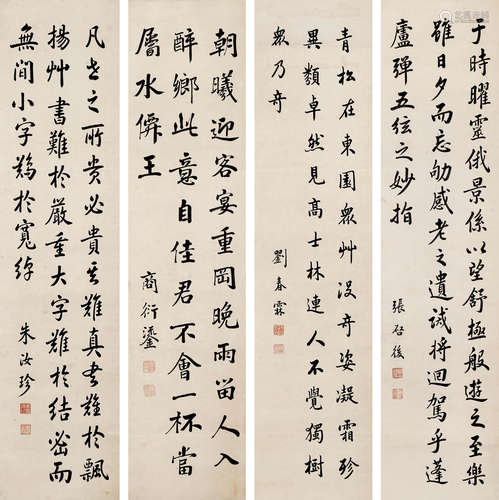 于時曜靈俄景係以望舒極般遊之至樂
雖日夕而忘劬感老之遺誡將迴駕乎蓬
廬彈五弦之妙指
張啓後
青松在東園眾艸沒奇姿凝霜殄
異類卓然見高士林連人不覺獨樹
眾乃奇
劉春霖
朝曦迎客宴重岡晚雨留人入
醉鄉此意自佳君不會一杯當
屬水僊王
商衍鎏
凡世之所貴必貴其難真書難於飄
揚艸書難於嚴重大字難於結密而
無間小字難於寬綽
朱汝珍